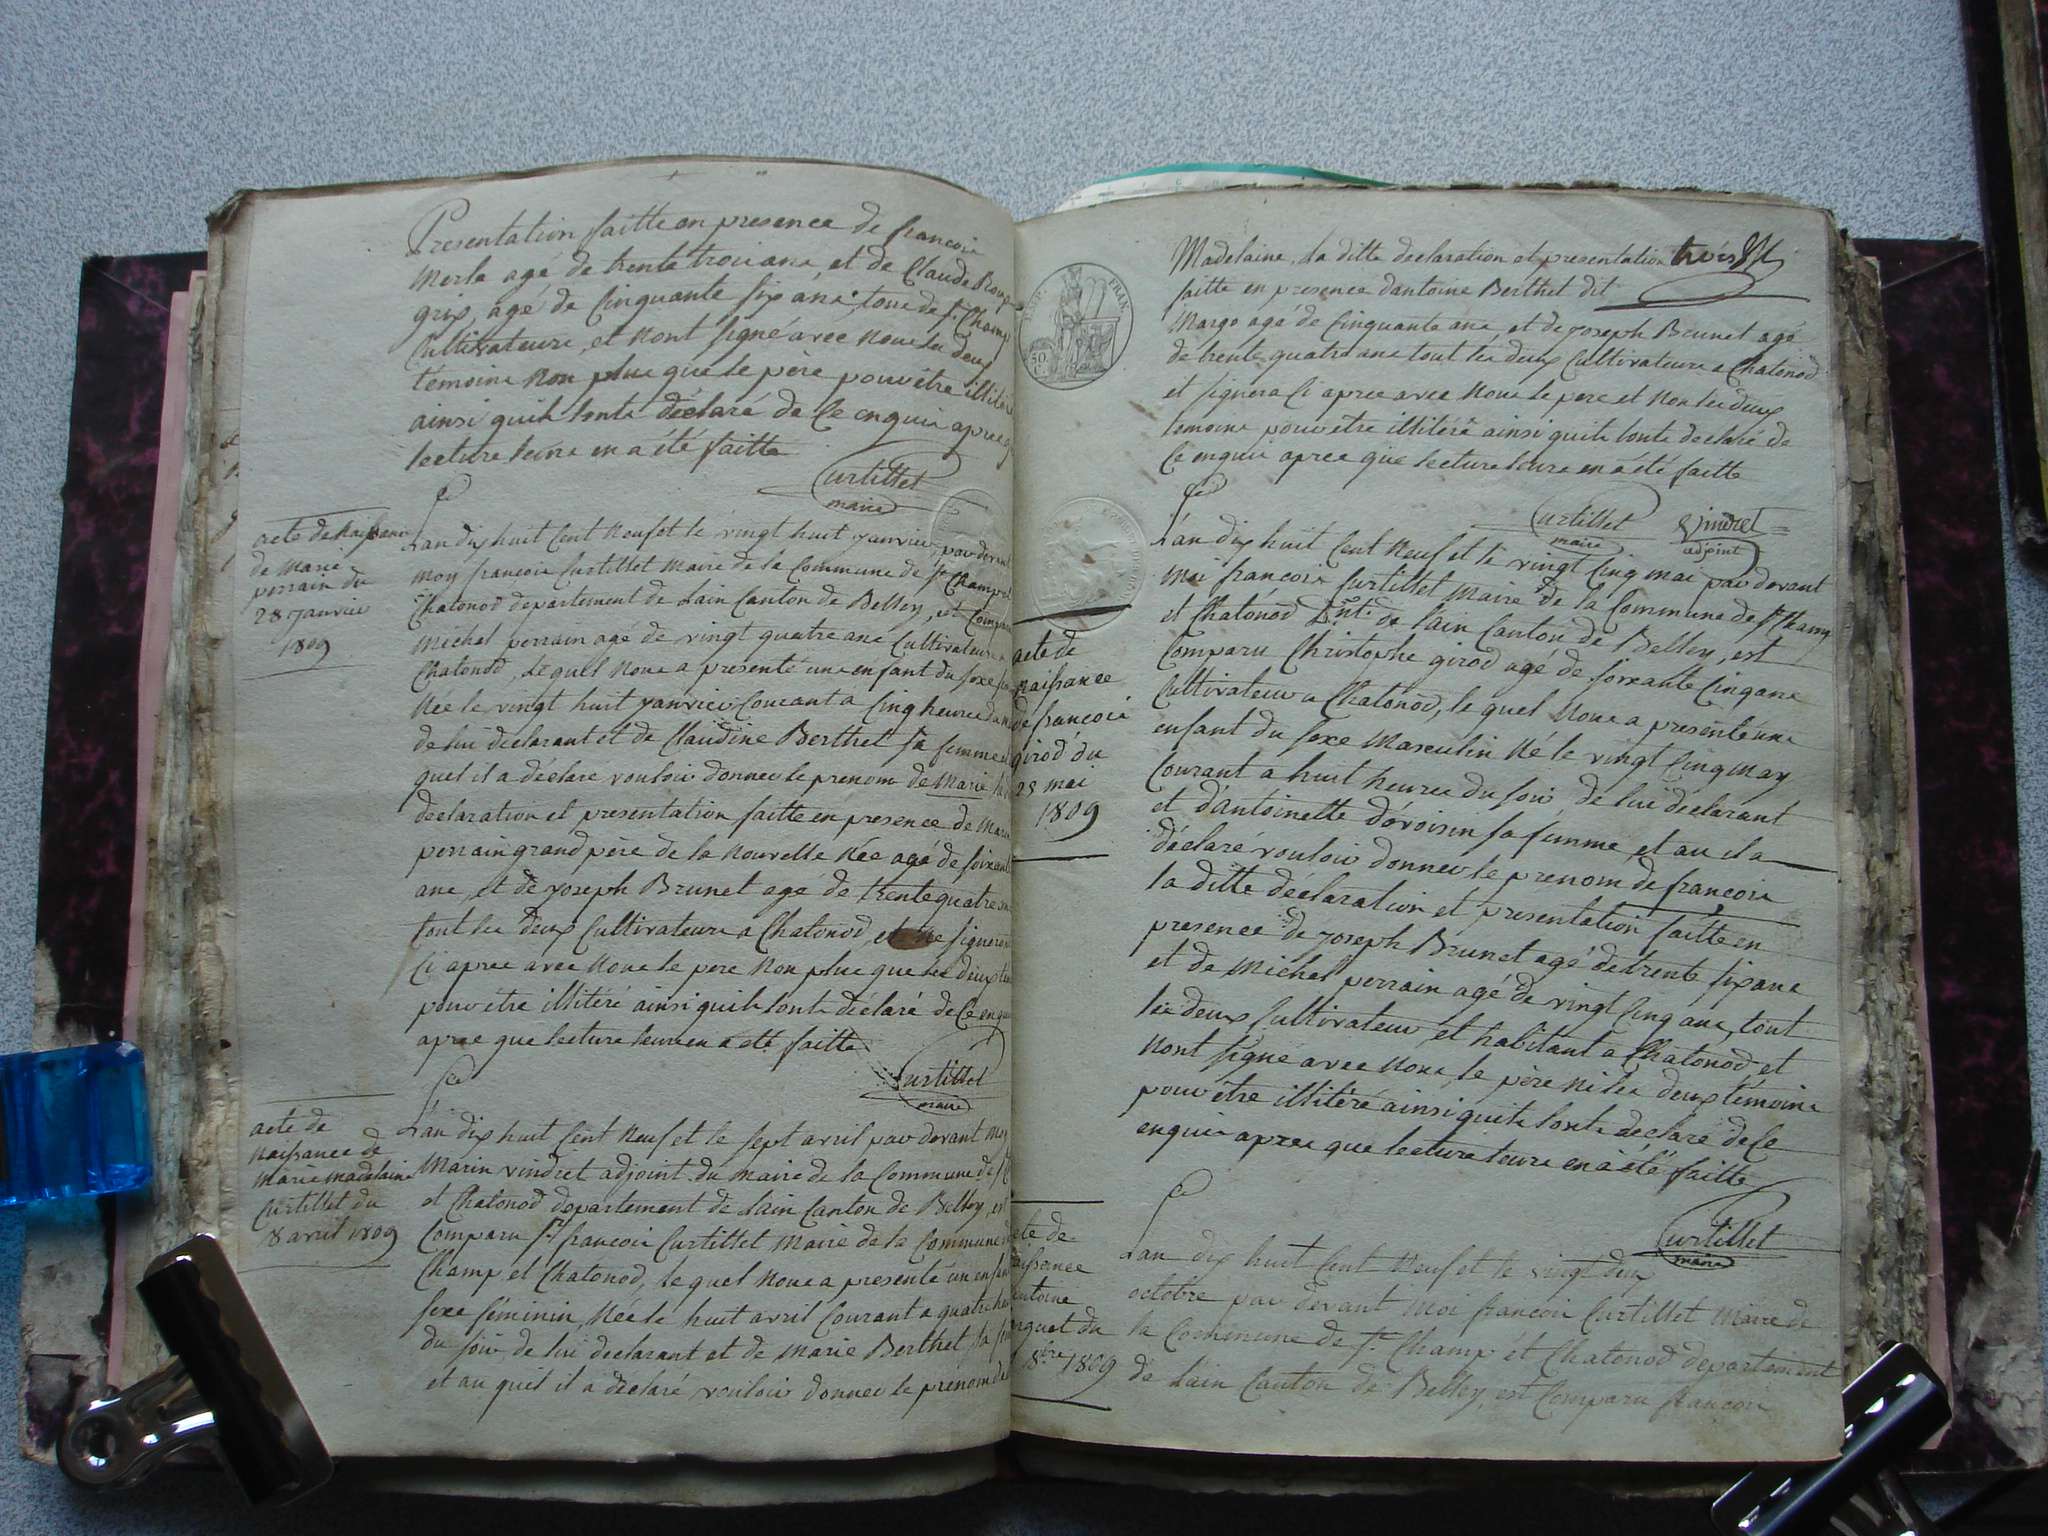 Presentation faitte en presence de francois
Merle agé de trente trois ans, et de Claude
grix, agé de Cinquante six ans, tous de st Champ
Cultivateurs, et n'ont signé avec nous les deux
témoins non plus que le père pour être illitéré
ainsi quils l'onts déclaré de ce enquis apres q
lecture leurs en a été faitte
Curtillet
maire
acte de naissance
de marie
perrain du
28 janvier
1809
L'an dix huit Cent Neuf et le vingt huit janvier, par devant
moy françois Curtillet Maire de la Commune de st Champ et
Chatonod departement de Lain Canton de Belley, est Comparu
Michel perrain agé de vingt quatre ans Cultivateur a
Chatonod, Lequel Nous a presenté une enfant du sexe
Née le vingt huit janvier Courant a Cinq heures du
de lui declarant et de Claudine Berthet sa femme et
quel il a déclaré vouloir donner le prenom de Marie
déclaration et presentation faitte en presence de
perrain grand père de la Nouvelle Née agé de soixante
ans, et de joseph Brunet agé de trente quatre ans
tout les deux Cultivateurs a Chatonod, et Ne signeront
Ci apres avec Nous le pere Non plus que les deux
pour être illitéré ainsi quils l'onts déclaré de Ce enquis
apres que lecture leurs en a été faitte
Curtillet
maire
acte de
naissance de
Marie Madelaine
Curtillet du
8 avril 1809
L'an dix huit Cent Neuf et le sept avril par devant Moy
Marin vindret adjoint du Maire de la Commune de st
et Chatonod departement de Lain Canton de Belley, est
Comparu sr francois Curtillet Maire de la Commune de
Champ et Chatonod, le quel Nous a presenté un enfant
sexe féminin, Née le huit avril Courant a quatre heures
du soir, de lui declarant et de Marie Berthet sa
et au quel il a déclaré vouloir donner le prenom de
REP. FRAN.
50.
C.
Madelaine, la ditte declaration et presentation trois
faitte en presence d'antoine Berthet dit
Margo agé de Cinquante ans, et de joseph Brunet agé
de trente quatre ans tout les deux Cultivateurs a Chatonod
et signera Ci apres avec Nous le pere et Non les deux
temoins pour être illitéré ainsi quils l'onts declaré de
Ce enquis apres que lecture leurs en a été faitte
Curtillet
maire
Vindret
adjoint
acte de
naissance
de françois
girod du
25 mai
1809
L'an dix huit Cent Neuf et le vingt Cinq mai par devant
Moi françois Curtillet Maire de la Commune de st Champ
et Chatonod Dpnt. de Lain Canton de Belley, est
Comparu Christophe girod agé de soixante Cinq ans
Cultivateur a Chatonod, le quel Nous a presenté une
enfant du sexe Masculin Né le vingt Cinq may
Courant a huit heures du soir, de lui declarant
et d'Antoinette dévoisin sa femme, et au il a
déclaré vouloir donner le prenom de françois
la ditte déclaration et presentation faitte en
presence de joseph Brunet agé de trente six ans
et de Michel perrain agé de vingt Cinq ans, tout
les deux Cultivateur et habitant a Chatonod, et
N'ont signé avec Nous, le père Ni les deux témoins
pour être illitéré ainsi quils l'onts déclaré de Ce
enquis apres que lecture leurs en a été faitte
Curtillet
maire
acte de
naissance
antoine
du
8bre 1809
L'an dix huit Cent Neuf et le vingt deux
octobre par devant Moi françois Curtillet Maire de
la Commune de st Champ et Chatonod departement
de Lain Canton de Belley, est Comparu françois